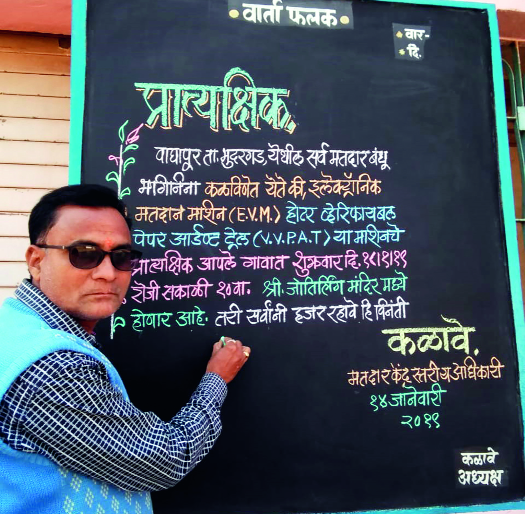 वार्ता फलक
वार-
दि.
प्रात्यक्षिक.
वाघापूर ता. भुदरगड, येथील सर्व मतदार बंधू
भगिनींना कळविणेत येते की, इलेक्ट्रॉनिक
मतदान मशिन (E.V.M.) होटर व्हेरिफायबल
पेपर आडीण्ट ट्रेल (V.V.P.A.T) या मशिनचे
प्रात्यक्षिक आपले गावात शुक्रवार दि. १८/१/१९
रोजी सकाळी १० वा. श्री. जोतिर्लिंग मंदिर मध्ये
होणार आहे. तरी सर्वांनी हजर रहावे हि विनंती
कळावे.
मतदार केंद्रस्तरीय अधिकारी
१४ जानेवारी
२०१९
कळावे
अध्यक्ष